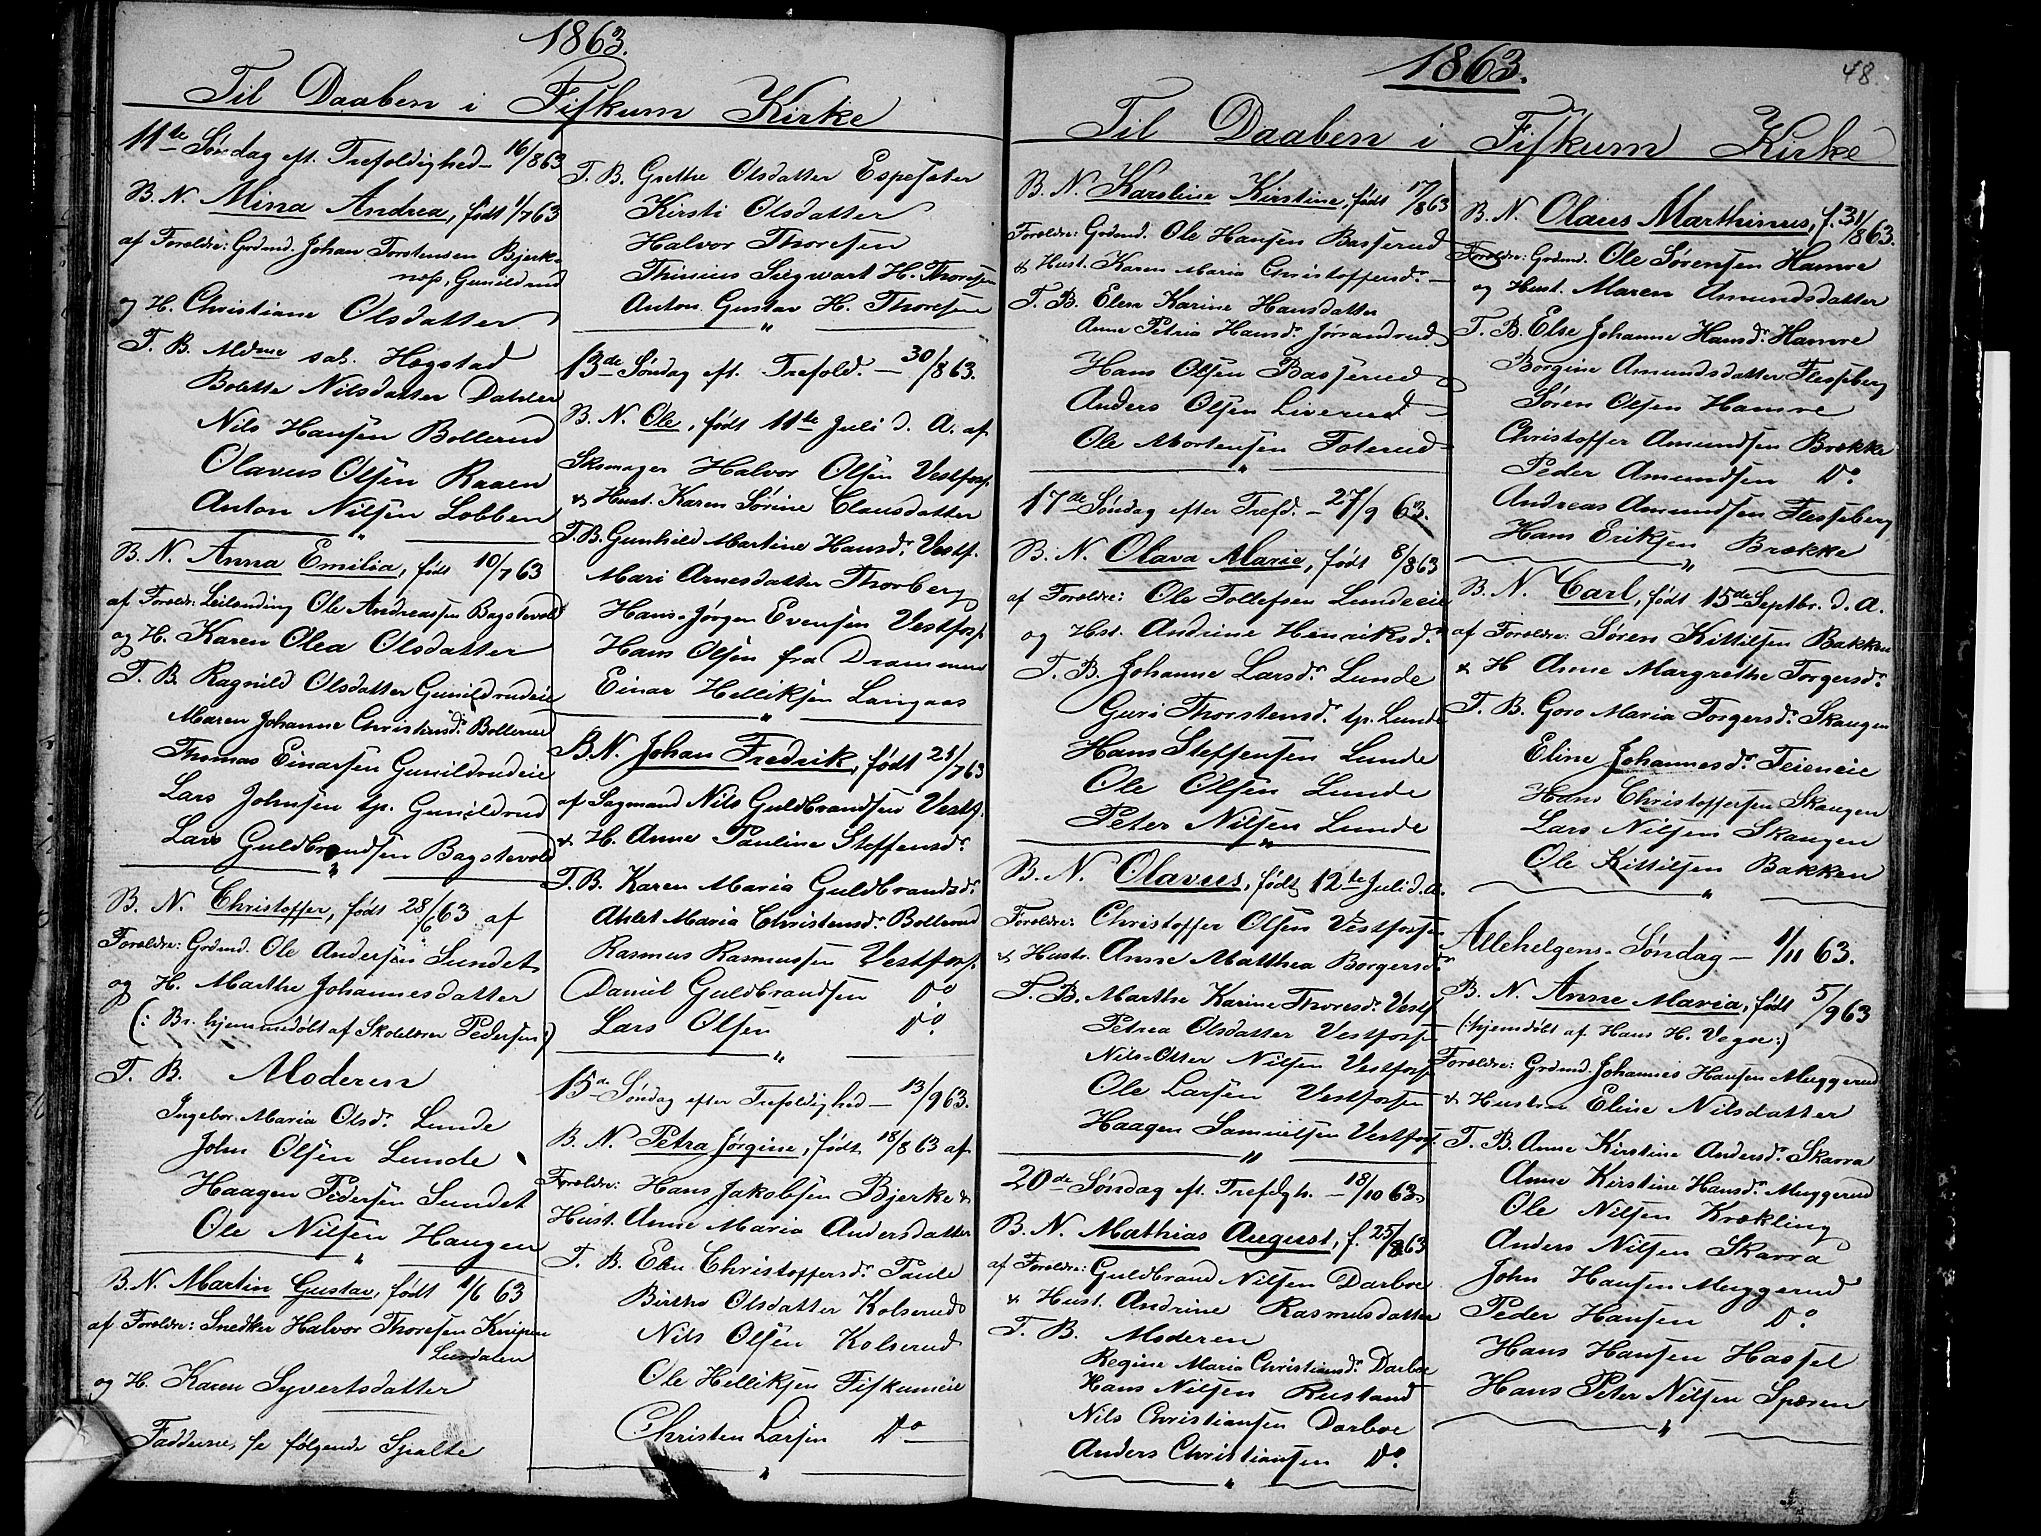 1863.
Til Daaben i Fiskum Kirke
11te Søndag eft. Trefoldighed - 16/8 63
B. N. Mina Andrea, født 1/7 63
af Foreldre: Grdmd. Johan Torstensen Bjerk-
næs, Gunildrud
og H. Christiane Olsdatter
T. B. Mdme sal. Høgstad
Bolette Nilsdatter Dahler
Nils Hansen Bollerud
Olavus Olsen Raaen
Anton Nilsen Lobben
B. N. Anna Emilia, født 10/7 63
af Foreldr: Leilending Ole Andreassen Bagstevold
og H. Karen Olea Olsdatter
T. B. Ragnild Olsdatter Gunildrudeie
Maren Johanne Christensd. Bollerud
Thomas Einarsen Gunildrudeie
Lars Johnsen tp. Gunildrud
Lars Guldbrandsen Bagstevold
B. N. Christoffer, født 28/6 63 af
Foreldre: Grdmd. Ole Andersen Sundet
og H. Marthe Johannesdatter
(: Br. hjemmedøbt af Skolelærer Pedersen)
T. B. Moderen
Ingebor Maria Olsd. Lunde
John Olsen Lunde
Haagen Pedersen Sundet
Ole Nilsen Haugen
B. N. Martin Gustav, født 1/6 63
af Foreldre: Snedker Halvor Thoresen Knipen
Lurdalen
og H. Karen Syvertsdatter
Fadderne, se følgende Spalte
T. B. Grethe Olsdatter Espeseter
Kirsti Olsdatter
Halvor Thoresen
Thinius Siegwart H. Thoresen
Anton Gustav H. Thoresen
13de Søndag eft. Trefold. - 30/8 63.
B. N. Ole, født 11te Juli d. A. af
Skomager Halvor Olsen Vestfoss.
& Hust. Karen Sørine Clausdatter
T. B. Gunhild Martine Hansd. Vestf.
Mari Arnesdatter Thorberg
Hans Jørgen Evensen Vestfoss.
Hans Olsen fra Drammen
Einar Helliksen Langaas
B. N. Johan Fredrik, født 21/7 63
af Sagmand Nils Guldbrandsen Vestf.
& H. Anne Pauline Steffensd.
T. B. Karen Maria Guldbrandsd.
Ahlet Maria Christensd. Bollerud
Rasmus Rasmussen Vestfoss.
Daniel Guldbrandsen Do
Lars Olsen Do.
15de Søndag efter Trefoldighed - 13/9 63.
B. N. Petra Jørgine, født 18/8 63 af
Foreldre: Hans Jakobsen Bjerke &
Hust. Anne Maria Andersdatter
T. B. Elen Christoffersd. Paule
Birthe Olsdatter Kolserud
Nils Olsen Kolserud
Ole Helliksen Fiskumeie
Christen Larsen Do
1863.
48.
Til Daaben i Fiskum Kirke
B. N. Karoline Kirstine, født 17/8 63
Foreldre: Grdmd. Ole Hansen Basserud
& Hust. Karen Maria Christoffersd.
T. B. Elen Karine Hansdatter
Anne Petria Hansd. Jørandrud
Hans Olsen Basserud
Anders Olsen Liverud
Ole Mortensen Foterud
17de Søndag efter Trefd. - 27/9 63.
B. N. Olava Marie, født 8/8 63
af Foreldre: Ole Tollefsen Lundeeie
og Hst. Andrine Henriksd.
T. B. Johanne Larsd. Lunde
Guri Thorstensd. tp. Lunde
Hans Steffensen Lunde
Ole Olsen Lunde
Peter Nilsen Lunde
B. N. Olavus, født 12te Juli d. A.
Foreldre: Christoffer Olsen Vestfossen
& Hustr. Anne Matthea Borgersd.
T. B. Marthe Karine Thoresd. Vestf.
Petrea Olsdatter Vestfoss
Nils-Otter Nilsen Vestfoss
Ole Larsen Vestfossen
Haagen Samuelsen Vestfoss.
20de Søndag eft. Trefdgh. - 18/10 63.
B. N. Mathias August, f. 25/8 63
af Foreldre: Guldbrand Nilsen Darboe
& Hust. Andrine Rasmusdatter
T. B. Moderen
Regine Maria Christiansd. Darboe
Hans Nilsen Rustand
Nils Christiansen Darboe
Anders Christiansen Do.
B. N. Olaus Marthinus, f. 31/8 63.
Foreldre: Grdmd. Ole Sørensen Hamre
og Hust. Maren Amundsdatter
T. B. Else Johanne Hansd. Hamre
Borgine Amundsdatter Flesseberg
Søren Olsen Hamre
Christoffer Amundsen Brække
Peder Amundsen Do.
Andreas Amundsen Flesseberg
Hans Eriksen Brække
B. N. Carl, født 15de Septbr. d. A.
af Foreldre: Søren Kittilsen Bakken
& H Anne Margrethe Torgersd.
T. B. Goro Maria Torgersd. Skaugen
Eline Johannesd. Teieneie
Hans Christoffersen Skaugen
Lars Nilsen Skaugen
Ole Kittilsen Bakken
Allehelgens-Søndag - 1/11 63.
B. N. Anne Maria, født 5/9 63
(:hjemdøbt af Hans H. Vego:)
Foreldre: Grdmd. Johannes Hansen Muggerud
& Hustru Eline Nilsdatter
T. B. Anne Kirstine Andersd. Skarra
Anne Kirstine Hansd. Muggerud
Ole Nilsen Krekling
Anders Nilsen Skarra
John Hansen Muggerud
Peder Hansen Do.
Hans Hansen Hassel
Hans Peter Nilsen Spæren